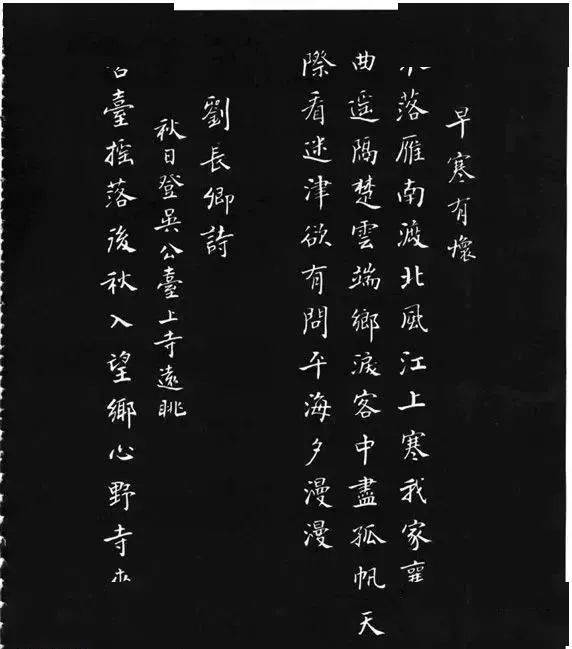 早寒有懷
落雁南渡北風江上寒我家
曲遥隔楚雲端鄉淚客中盡孤帆天
際看迷津欲有問平海夕漫漫
劉長卿詩
秋日登吳公臺上寺遠眺
臺搖落後秋入望鄉心野寺